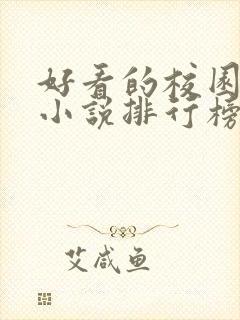 好看的校园
小说排行榜
艾咸鱼